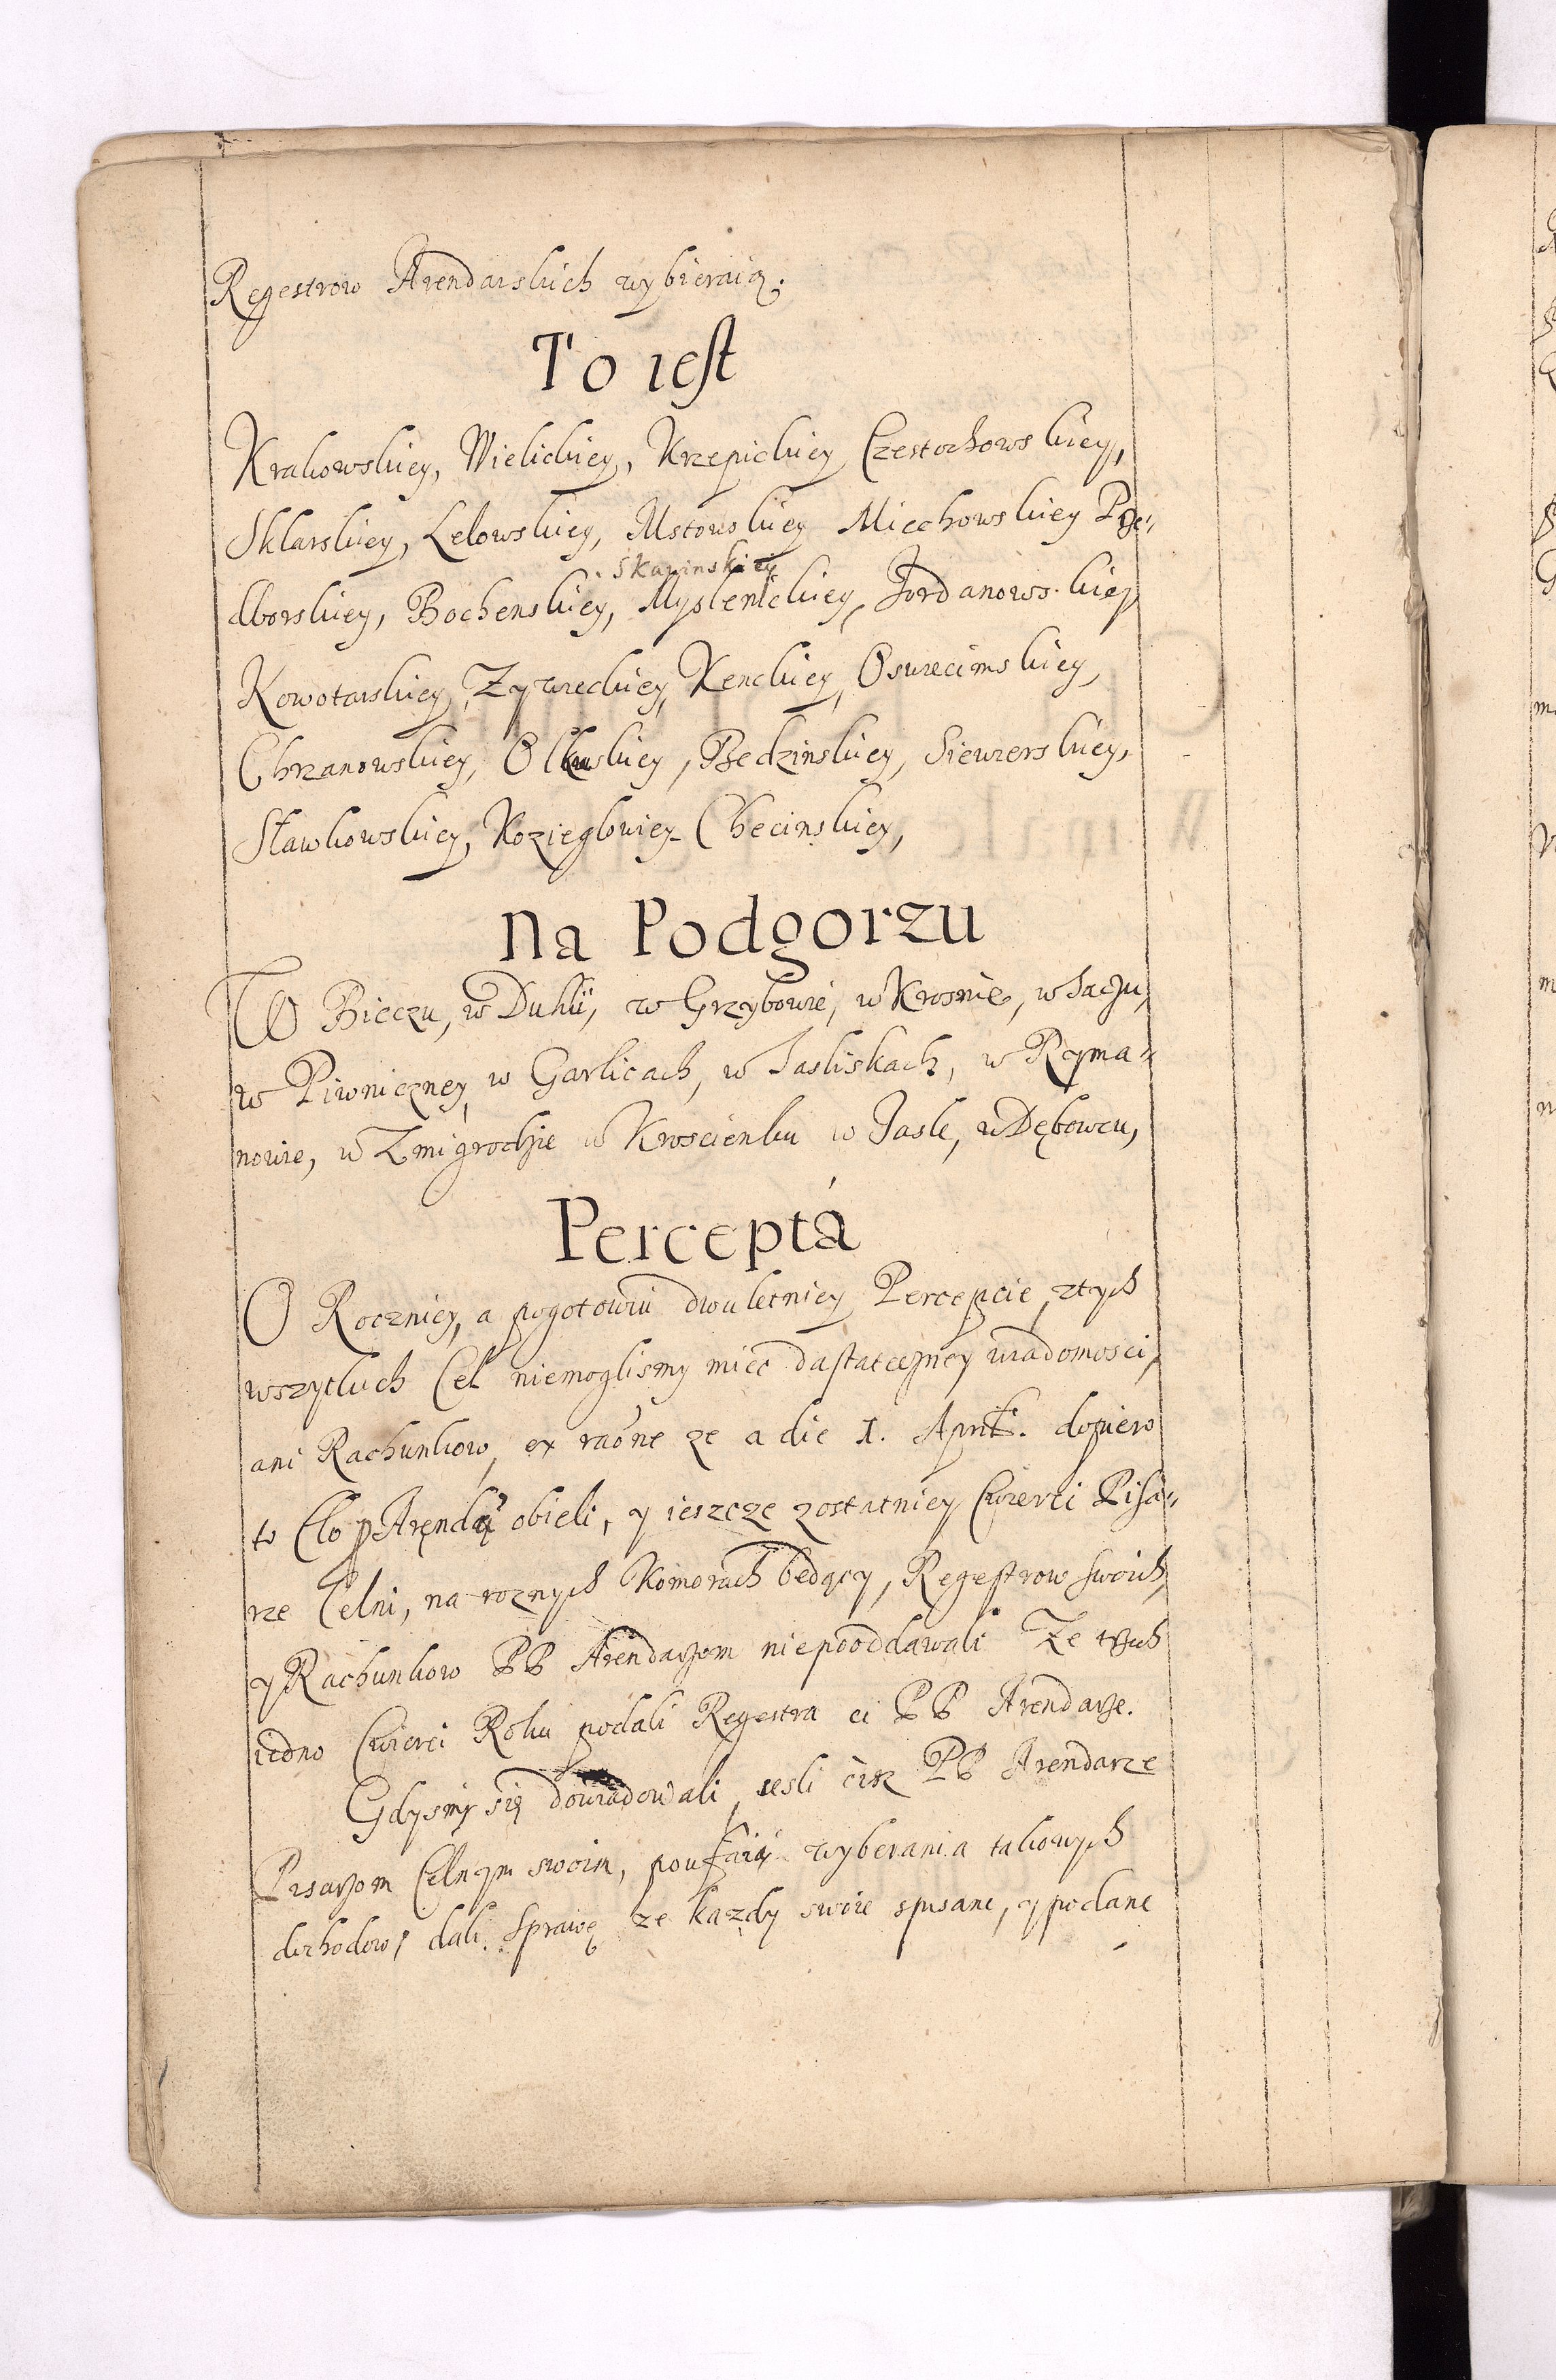 Regestrow Arendarskich wybieraią.
To iest
Krakowskiey, Wielickiey, Krzepickiey Czestochowskiey,
Sklarskiey, Lelowskiey, Mstowskiey Miechowskiey Prze-
dborskiey, Bochenskiey, Myslenickiey, Jordanowskiey
Skawinskiey
Nowotarskiey, Zywieckiey, Kenckiey, Oswiecimskiey,
Chrzanowskiey, Olkuskiey, Bedzinskiey, Siewierskiey,
Sławkowskiey, Koziegloviey Checinskiey,
Na Podgorzu
W Bieczu, w Dukli, w Grzybowie, w Krosnie, w Sączu,
w Piwniczney w Garlicach, w Jasliskach, w Ryma-
nowie, w Zmigrodzie w Kroscienku w Jasle, w Dębowcu,
Perceptá
O Roczniey, a pogotowiu dwuletniey Percepcie, ztych
wszytkich Cel niemoglismy miec dastateczney wiadomosci,
ani Rachunkow, ex raõne ze a die 1. Aprilis. dopiero
to Clo p Arendą obieli, y ieszcze zostatniey Cwierci Pisa-
rze Celni, na roznych Komorach bedący, Regestrow swoich,
y Rachunkow PP Arendarzom niepooddawali Ze trzech
iedno Cwierci Roku podali Regestra ci PP Arendarze.
Gdysmy się dowiadowali, iesli ciż PP Arendarze
Pisarzom Celnym swoim, poufaią wyberania takowych
dochodow, dali. Sprawę ze kazdy swoie spisane, y podane